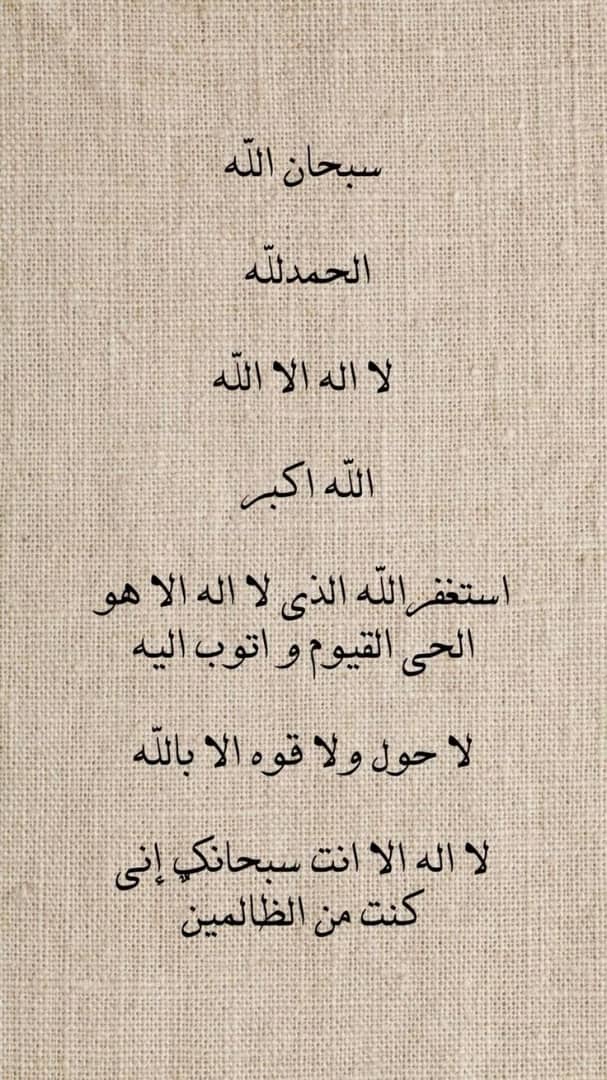 سبحان اللّه
الحمدللّه
لا اله الا اللّه
اللّه اكبر
استغفر اللّه الذى لا اله الا هو
الحى القيوم و اتوب اليه
لا حول ولا قوه الا باللّه
لا اله الا انت سبحانك إنى
كنت من الظالمين